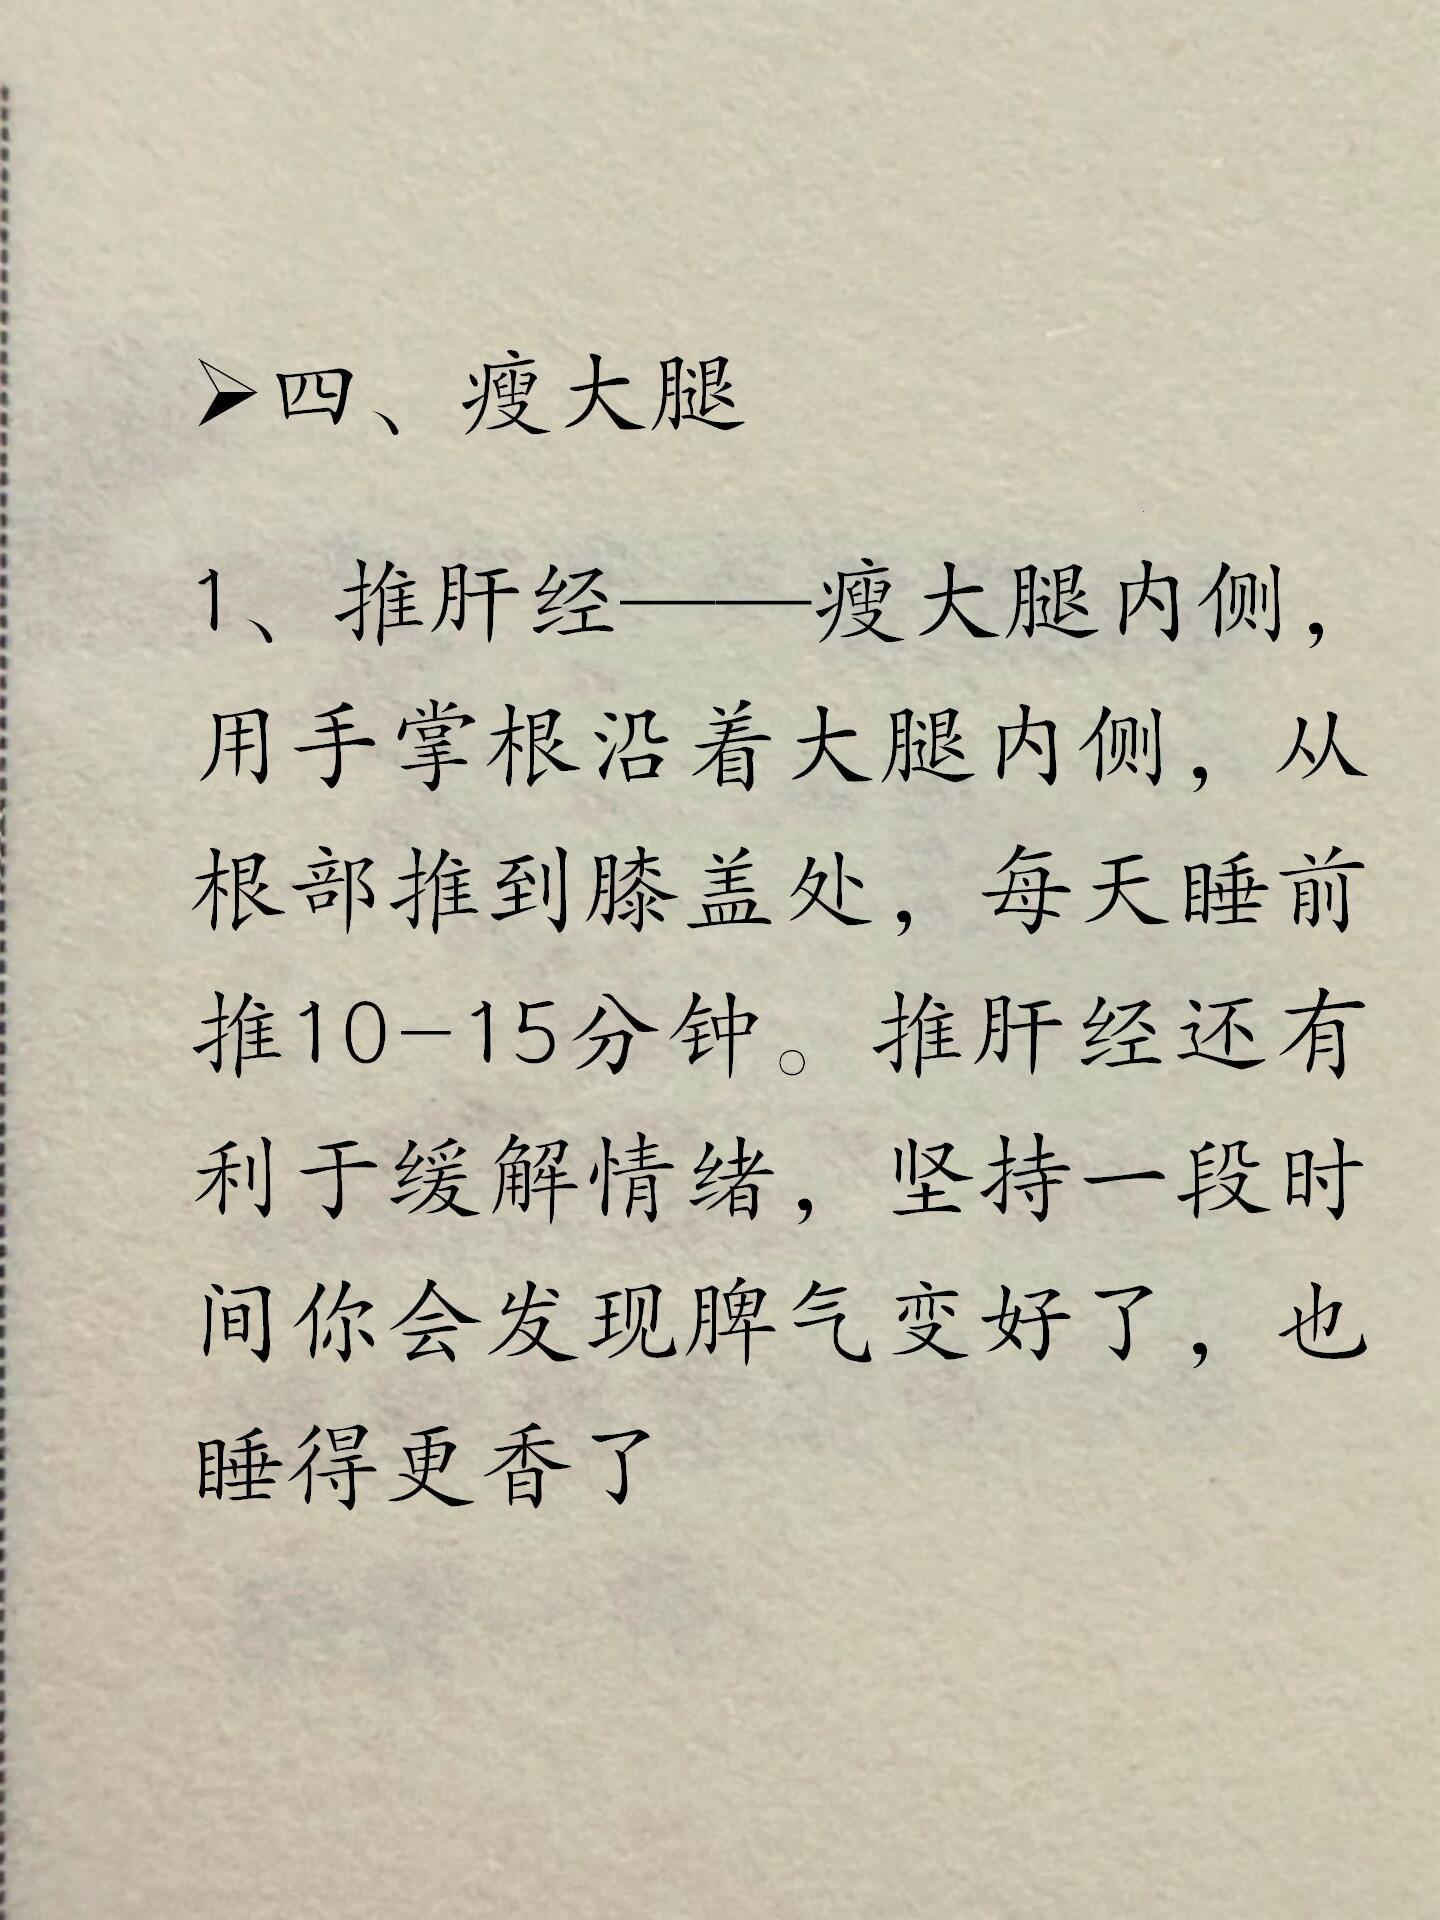 ➢四、瘦大腿
1、推肝经——瘦大腿内侧，
用手掌根沿着大腿内侧，从
根部推到膝盖处，每天睡前
推10-15分钟。推肝经还有
利于缓解情绪，坚持一段时
间你会发现脾气变好了，也
睡得更香了